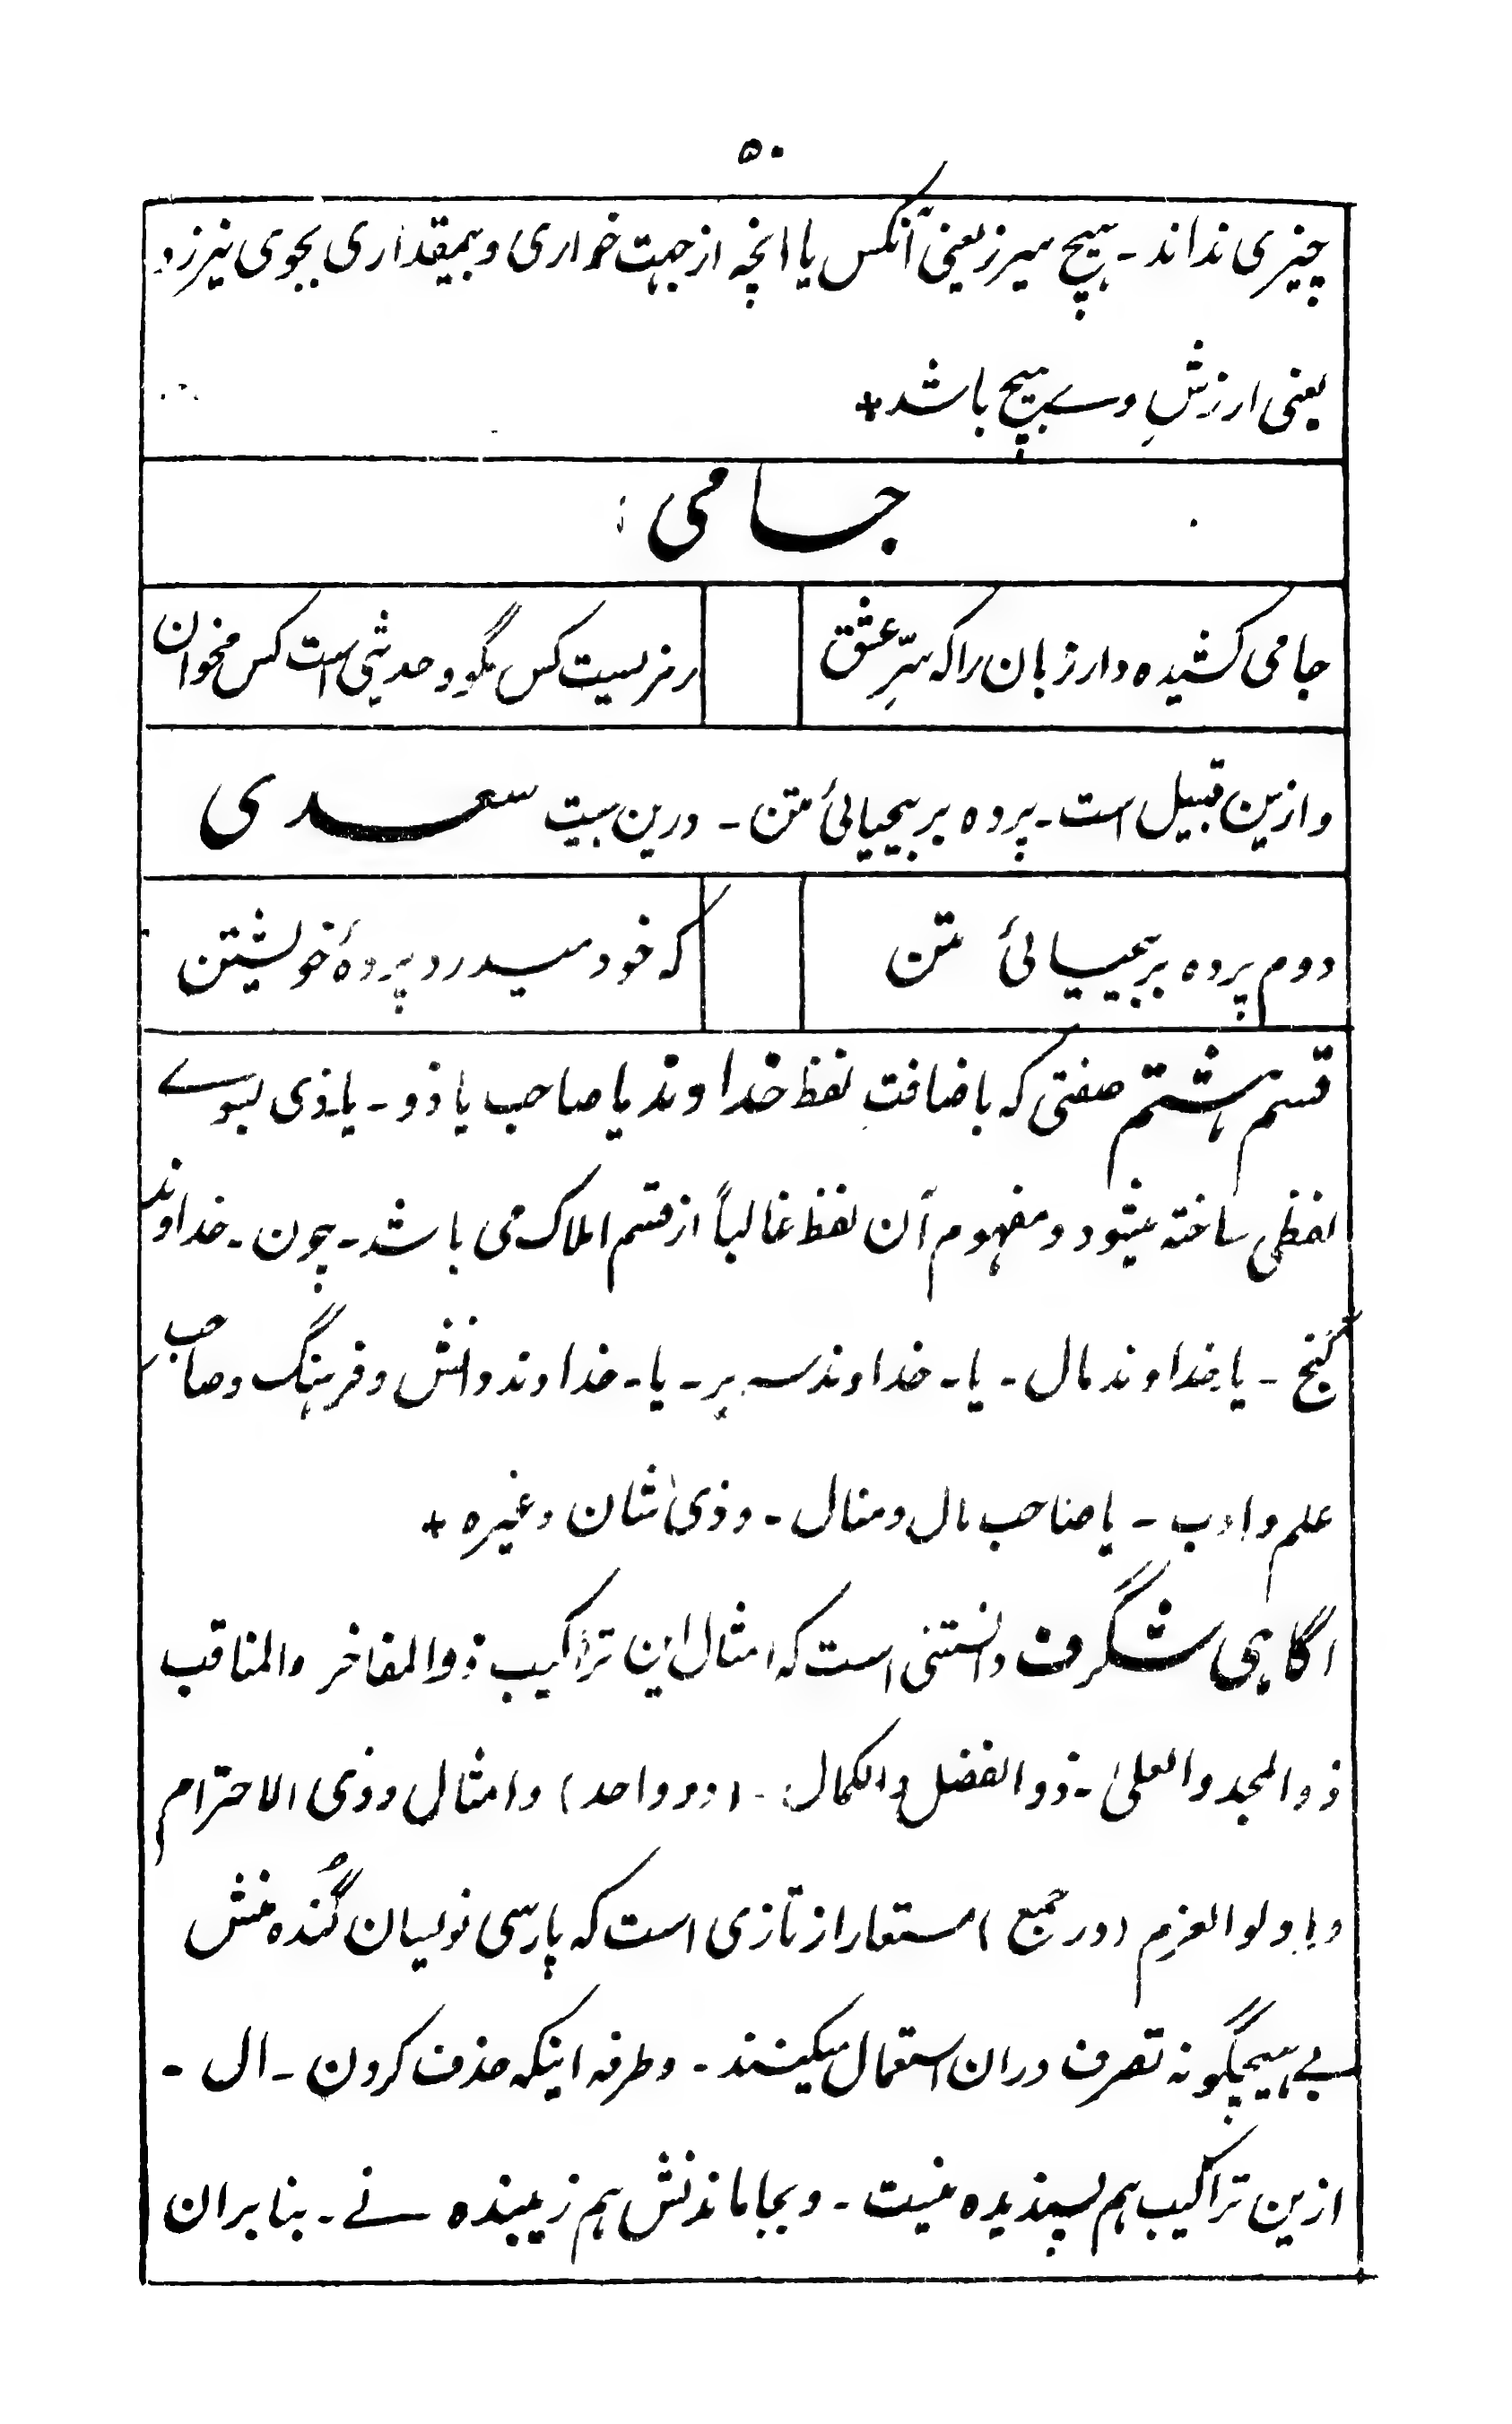 ۵۰
چیزی نداند - هیچ میرز یعنی آنکس یا انچه از جهت خواری و بیمقداری بجوی نیرزد
یعنی ارزشِ وے هیچ باشد +
جامی
جامی کشیده دار زبان را که سرِّ عشق
رمزیست کس مگو و حدیثی است کس مخوان
و ازین قبیل است - پرده بر بیحیائی متن - درین بیت سعدی
دوم پرده بر بیحیائی متن
که خود میدرد پردهٔ خویشتن
قسم هشتم صفتی که باضافتِ لفظ خداوند یا صاحب یا ذو - یا - ذی بسوے
لفظی ساخته میشود و مفهوم آن لفظ غالباً از قسم املاک می باشد - چون - خداوند
گنج - یا خداوند مال - یا - خداوند سه پر - یا - خداوند دانش و فرهنگ و صاحب
علم و ادب - یا صاحب مال و منال - و ذی شان و غیره +
آگاهی شگرف دانستنی است که امثال این تراکیب ذوالمفاخر والمناقب
ذوالمجد والعلیٰ - ذوالفضل والکمال - (در واحد) و امثال و ذی الاحترام
و اولوالعزم (در جمع) مستعار از تازی است که پارسی نویسان گُنده منش
بے هیچگونه تصرف دران استعمال میکنند - و طرفه اینکه حذف کردن - ال -
ازین تراکیب هم پسندیده نیست - و بجا ماندنش هم زیبنده نے - بنابران